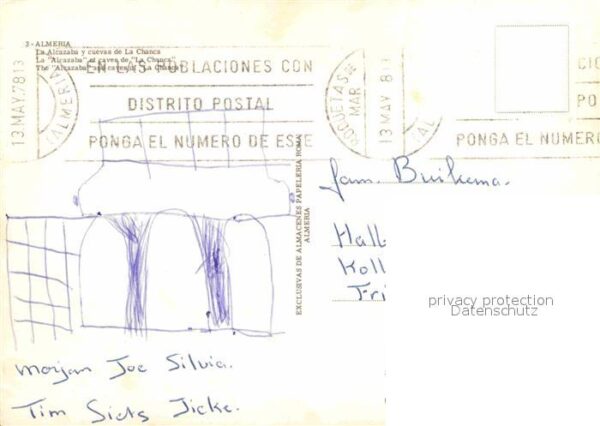 2 - ALMERIA
La Alcazaba y cuevas de La Chanca
La "Alcazaba" et caves de "La Chanca"
The "Alcazaba" and caves of "La Chanca"
13 MAY. 78 13
(ALMERIA)
EN LAS POBLACIONES CON
DISTRITO POSTAL
PONGA EL NUMERO DE ESTE
ROQUETAS DE MAR
13 MAY. 78 13
(AL
CIO
PO
PONGA EL NUMERO
EXCLUSIVAS DE ALMACENES PAPELERIA ROMA
ALMERIA
Fam. Buikema.
Hall
Koll
Fri
privacy protection
Datenschutz
Morjan Joe Silvia.
Tim Siets Jicke.